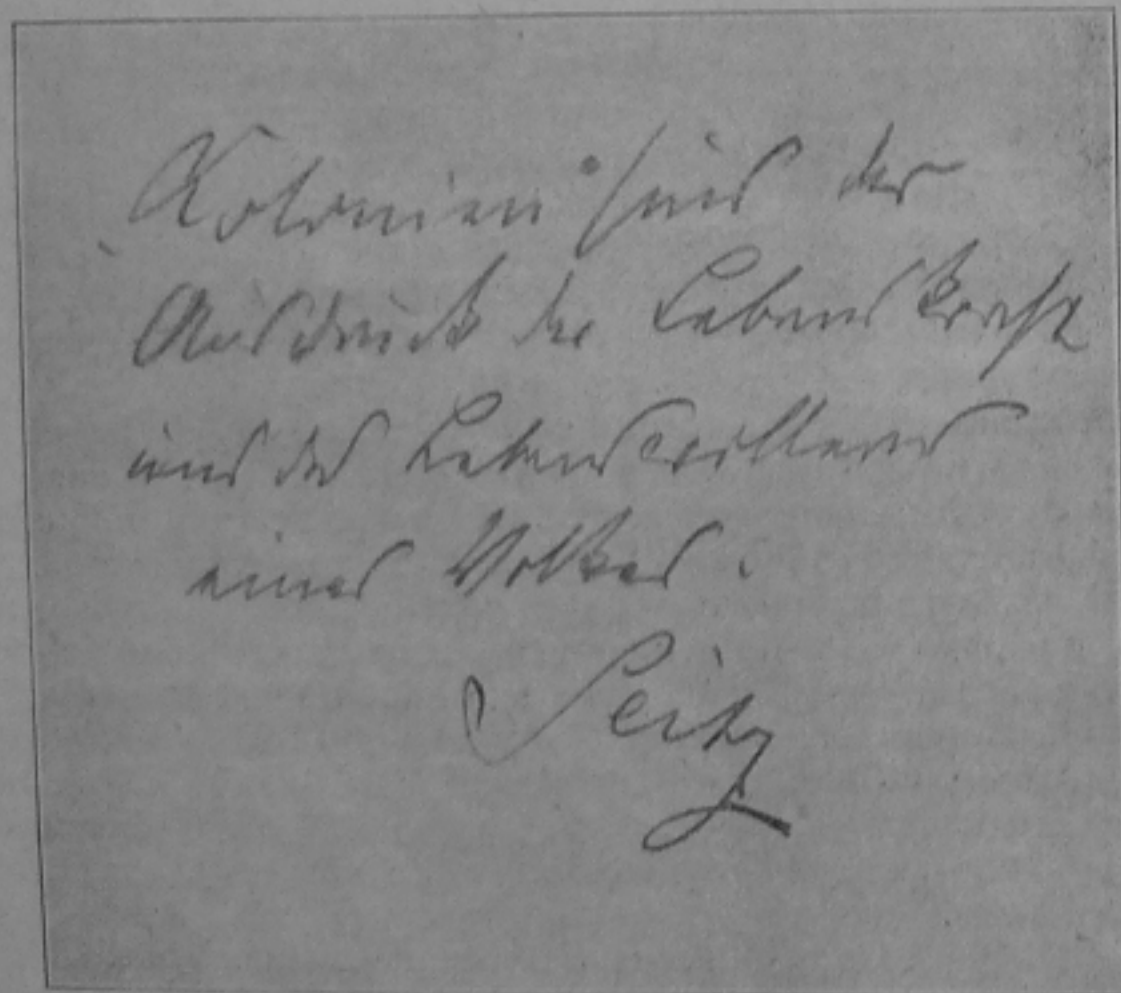 Kolonien sind der
Ausdruck der Lebenskraft
und des Lebenswillens
eines Volkes.
Seitz